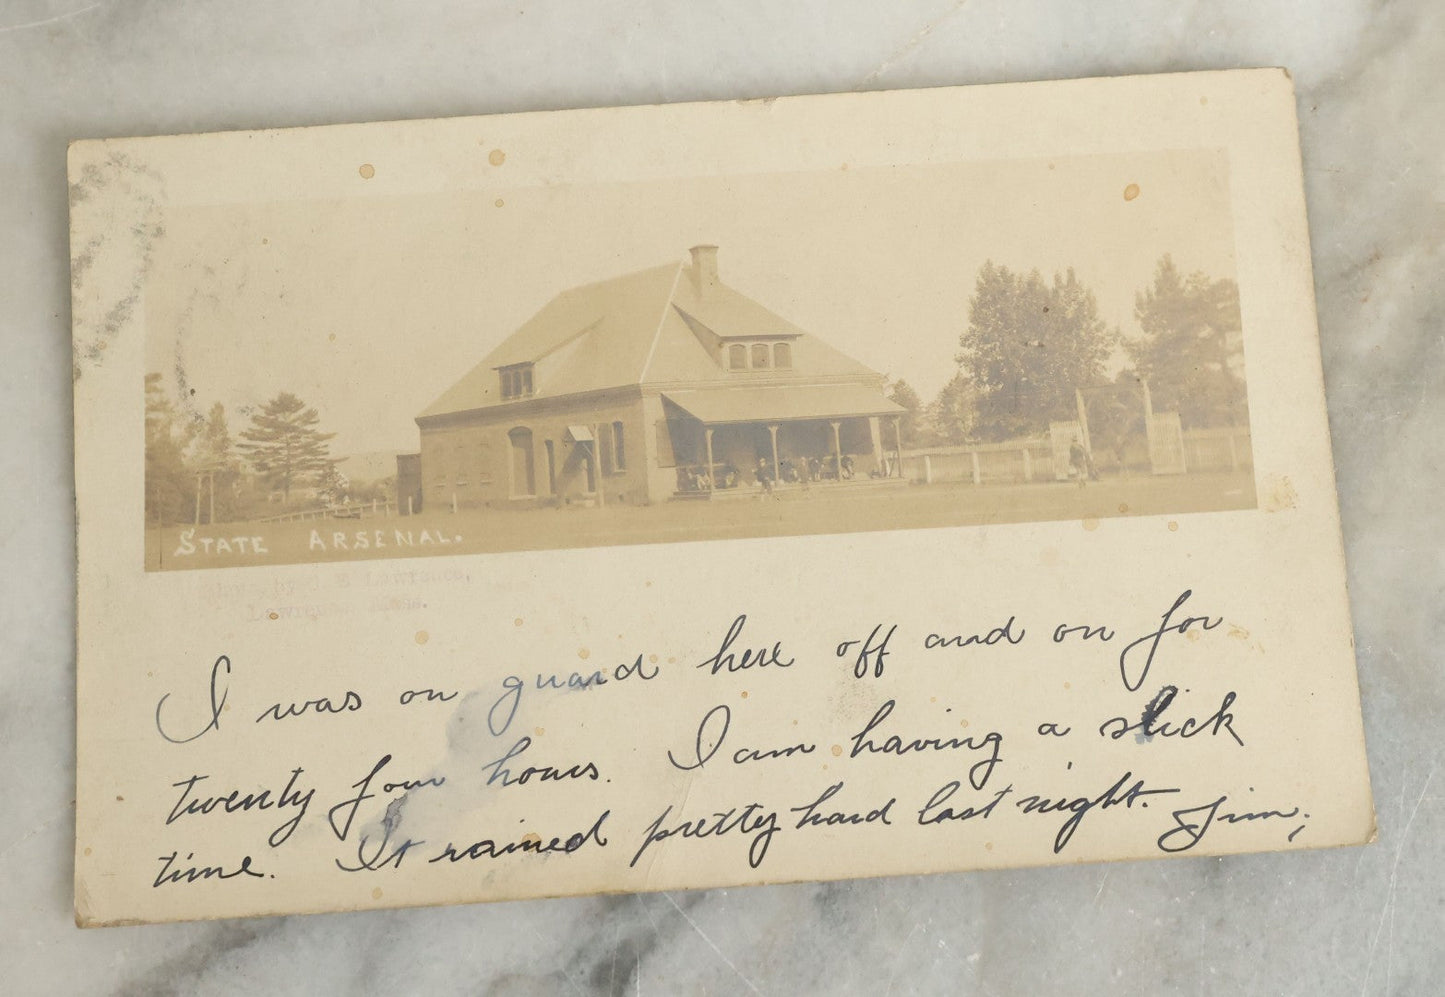 STATE ARSENAL.
by C E Lawrence,
Lawrence, Mass.
I was on guard here off and on for
twenty four hours. I am having a slick
time. It rained pretty hard last night. Jim.